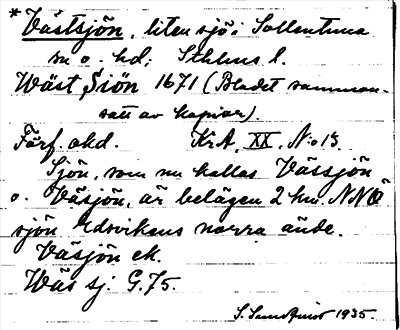 * Västsjön, liten sjö i Sollentuna
sn o. hd; Sthlms l.
Wäst Siön 1671 (Bladet samman-
satt av kopior).
Förf. okd. KrA, XX, N:o 13.
Sjön, som nu kallas Vässjön
o. Väsjön, är belägen 2 km. NNÖ
sjön Edsvikens norra ände.
Väsjön ek.
Wäs sj. G. 75.
S. Sundqvist 1935.